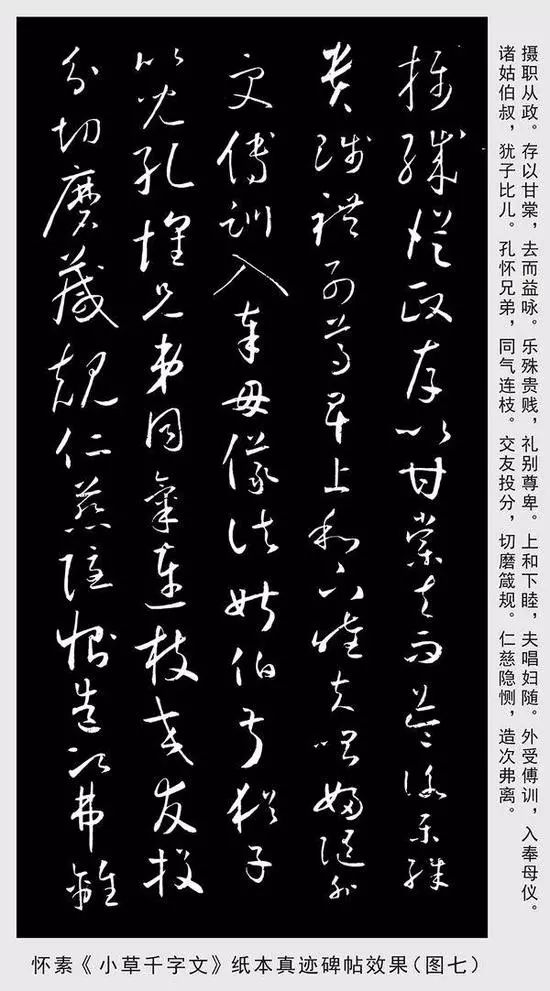 摄职从政。存以甘棠，去而益咏。乐殊贵贱，礼别尊卑。上和下睦，夫唱妇随。外受傅训，入奉母仪。
诸姑伯叔，犹子比儿。孔怀兄弟，同气连枝。交友投分，切磨箴规。仁慈隐恻，造次弗离。
攝職從政存以甘棠去而益詠樂殊
貴賤禮別尊卑上和下睦夫唱婦隨外
受傅訓入奉母儀諸姑伯叔猶子
比兒孔懷兄弟同氣連枝交友投
分切磨箴規仁慈隱惻造次弗離
怀素《小草千字文》纸本真迹碑帖效果（图七）